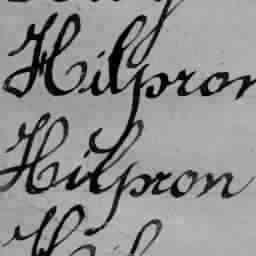 Hilpron
Hilpron